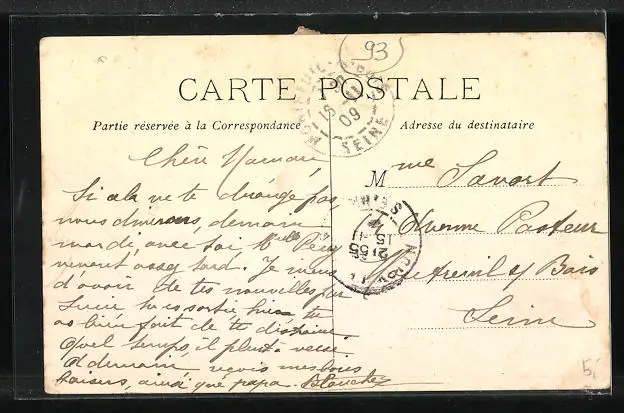 93
CARTE POSTALE
Partie réservée à la Correspondance
Adresse du destinataire
Chère Maman,
Si cela ne te dérange pas
nous dînerons, demain
mardi, avec toi Melle Péry
venant assez tard. Je viens
d'avoir de tes nouvelles par
Lucie tu es sortie hier tu
as bien fait de te distraire
Quel temps, il pleut à verse.
A demain, reçois mes bons
baisers, ainsi que papa. Blanche
Mme Savart
Avenue Pasteur
Montreuil s/ Bois
Seine
MONTREUIL
SEINE
15
11
09
15-11
5,